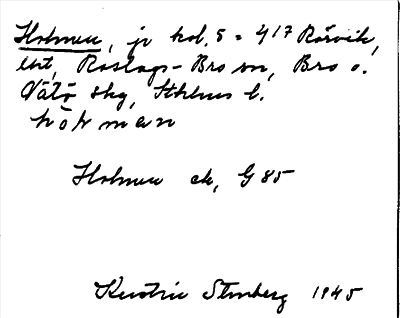 Holmen, jr kol. 5 = 417 Rörvik,
enl, Roslags-Bro sn, Bro o.
Vätö skg, Sthlms l.
hòlmen
Holmen ek, G 85
Kerstin Stenberg 1945